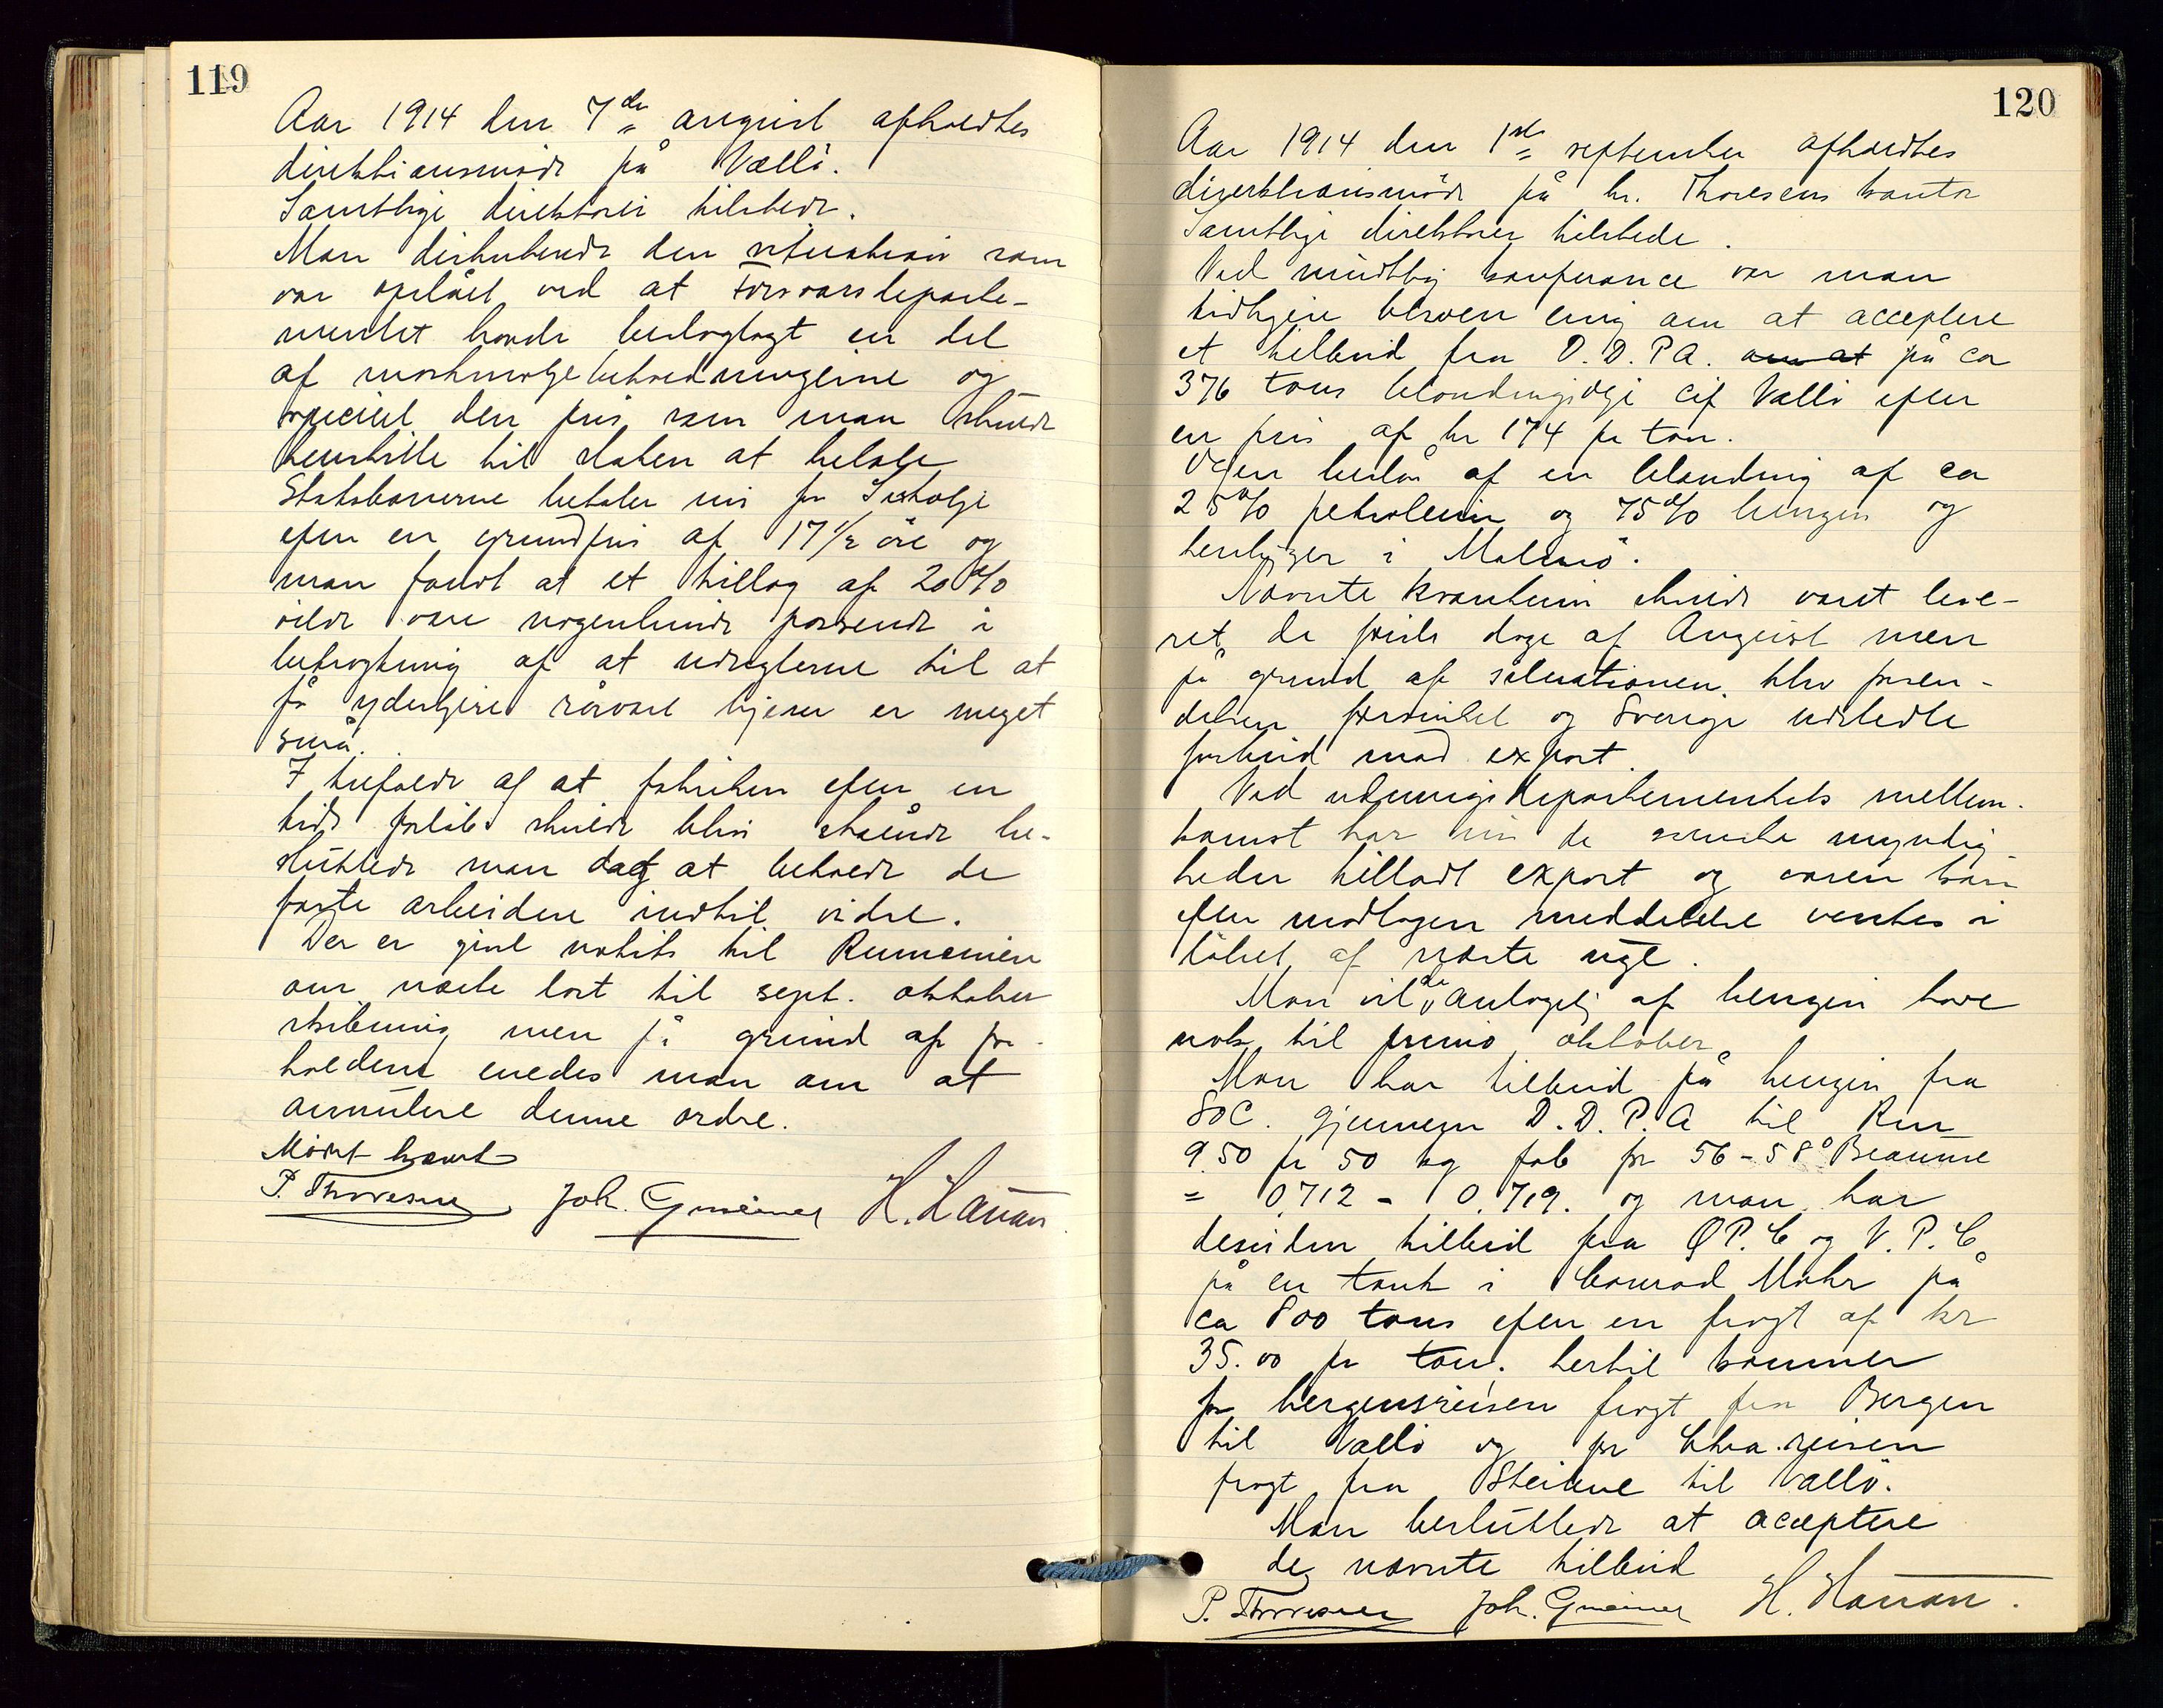 119
Aar 1914 den 7de august afholdtes
direktionsmöde på Vallö.
Samtlige direktörer tilstede.
Man diskuterede den situation som
var opstået ved at Forsvarsdeparte-
mentet havde beslaglagt en del
af maskinoljebeholdningerne og
specielt den pris som man skulde
henstille til staten at betale
Statsbanerne betaler nu for
efter en grundpris af 17 1/2 öre og
man fandt at et tillæg af 20 %
vilde være nogenlunde passende i
betragtning af at udsigterne til at
få yderligere råvare hjem er meget
små.
I tilfælde af at fabriken efter en
tids forløb skulde blive stående be-
sluttede man dog at beholde de
faste arbeidere indtil videre.
Der er givet notits til Rumænien
om næste last til sept. oktober
skibning men på grund af for-
holdene enedes man om at
annulere denne ordre.
Mödet hævet
P. Thoresen Joh. H. Hanan
120
Aar 1914 den 1ste september afholdtes
direktionsmöde på hr. Thoresens kontor
Samtlige direktører tilstede.
Ved mundtlig konferance var man
tidligere bleven enig om at acceptere
et tilbud fra D.D.P.A. om at på ca
376 tons blandingsolje cif Vallö efter
en pris af kr 174 pr ton.
Oljen består af en blanding af ca
25% petroleum og 75% benzin og
henligger i Malmö.
Nævnte kvantum skulde været leve-
ret de første dage af August men
på grund af situationen blev forsen-
delsen forsinket og Sverige udstedte
forbud mod export.
Ved udenrigsdepartementets mellem-
komst har nu de svenske myndig-
heder tilladt export og varen kan
efter modtagen meddelelse ventes i
løbet af næste uge.
Man vil da antagelig af benzin have
nok til primo oktober.
Man har tilbud på benzin fra
SOC. gjennem D.D.P.A til Km
9.50 pr 50 kg fob for 56-58° Beaume
= 0,712 - 0,719. og man har
desuden tilbud fra Ø.P.C og V.P.C.
på en tank i Conrad Mohr på
ca 800 tons efter en fragt af kr
35.00 pr ton. hertil kommer
for bergensreisen fragt fra Bergen
til Vallö og for Chra. reisen
fragt fra Steilene til Vallö.
Man besluttede at acceptere
de nævnte tilbud
P. Thoresen Joh. H. Hanan.